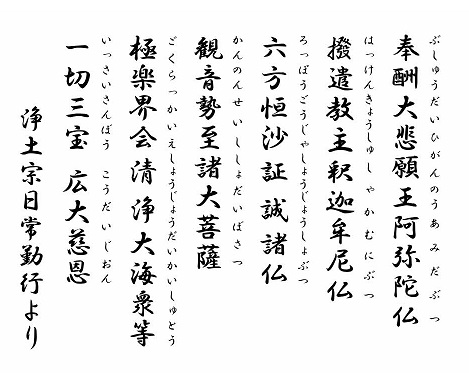 ぶしゅうだいひがんのうあみだぶつ
奉酬大悲願王阿弥陀仏
はっけんきょうしゅしゃかむにぶつ
撥遣教主釈迦牟尼仏
ろっぽうごうじゃしょうじょうしょぶつ
六方恒沙証誠諸仏
かんのんせいししょだいぼさつ
観音勢至諸大菩薩
ごくらっかいえしょうじょうだいかいしゅとう
極楽界会清浄大海衆等
いっさいさんぼうこうだいじおん
一切三宝広大慈恩
浄土宗日常勤行より